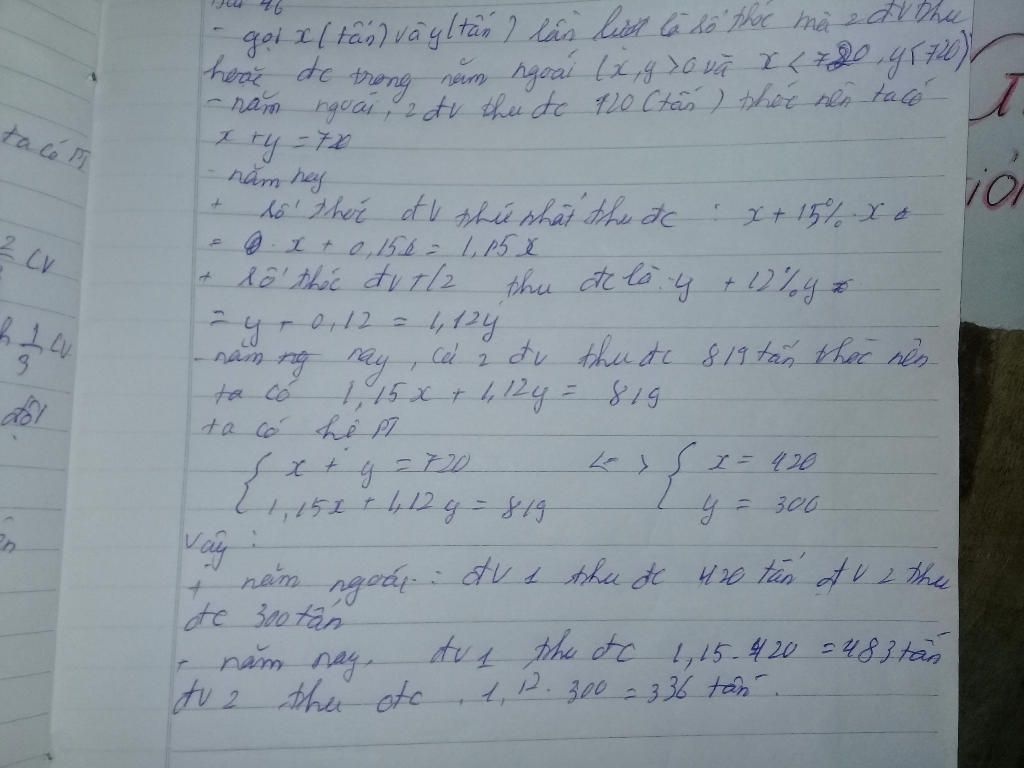 Bài 46
- gọi x (tấn) và y (tấn) lần lượt là số thóc mà 2 đv thu
hoạc đc trong năm ngoái (x,y >0 và x < 720, y < 720)
- năm ngoái, 2 đv thu đc 720 (tấn) thóc nên ta có
x + y = 720
- năm nay
+ số thóc đv thứ nhất thu đc : x + 15% . x
= x + 0,15x = 1,15x
+ số thóc đv t/2 thu đc là : y + 12% y
= y + 0,12 = 1,12y
- năm nay, cả 2 đv thu đc 819 tấn thóc nên
ta có 1,15x + 1,12y = 819
ta có hệ PT
{ x + y = 720 <=> { x = 420
1,15x + 1,12y = 819 y = 300
Vậy :
+ năm ngoái : đv 1 thu đc 420 tấn đv 2 thu
đc 300 tấn
+ năm nay, đv 1 thu đc 1,15 . 420 = 483 tấn
đv 2 thu đc . 1,12 . 300 = 336 tấn .
ta có PT
2 CV
1/9 CV
đội